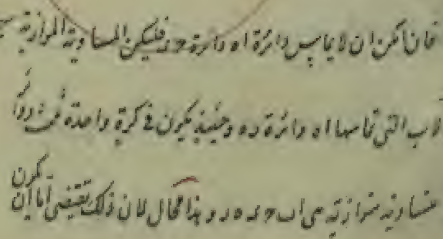 فان امكن ان لا يماس دائرة اه دائرة حد فليكن المساوية الموازية
لاب التي تماسها اه دائرة ده وحينئذ يكون في كرة واحدة ثلث دوائر
متساوية متوازية هي اب حد هد وهذا محال لان ذلك يقتضى اما ان يكون